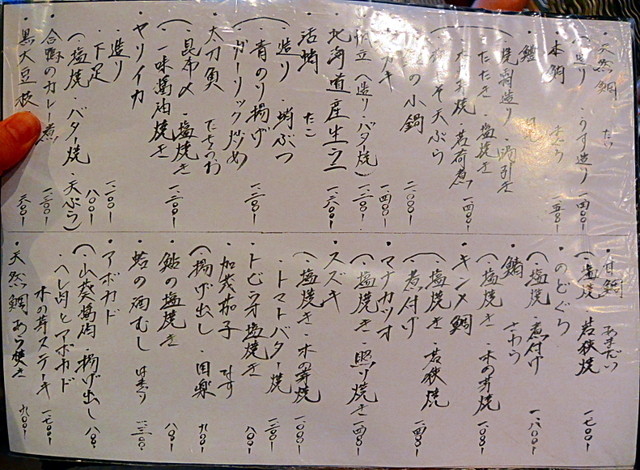 ・天然鯛 たい
うす造り 一四〇〇-
・本鯛
焼霜造り
たたき・塩焼き
木の芽焼・若狭煮 一四〇〇-
天ぷら
小鍋 一二〇〇-
帆立(造り・バタ焼) 一二〇〇-
・北海道産生ウニ 一六〇〇-
・活蛸 たこ
造り ぶつ
青のり揚げ
ガーリック炒め 一二〇〇-
・太刀魚 たちうお
昆布〆・塩焼き
一味醤油焼き 一二〇〇-
・ヤリイカ
造り 一二〇〇-
下足 八〇〇-
(塩焼・バター焼・天ぷら)
・合鴨のカレー煮 一二〇〇-
・黒大豆枝 六〇〇-
・甘鯛 あまだい
(塩焼・若狭焼 一七〇〇-
・のどぐろ
(塩焼・煮付け 一八〇〇-
・鰆 さわら
(塩焼き・木の芽焼 一〇〇〇-
・キンメ鯛
(塩焼き・若狭焼
煮付け 一四〇〇-
・マナガツオ
(塩焼き・照り焼き 一四〇〇-
・スズキ
(塩焼き・木の芽焼 一〇〇〇-
・トマトバター焼 一二〇〇-
・トビウオ塩焼き 八〇〇-
・加茂茄子 なす
(揚げ出し・田楽 九〇〇-
・鮎の塩焼き 八〇〇-
・蛤の酒むし はまぐり 一三〇〇-
・アボカド
(山葵醤油・揚げ出し 八〇〇-
・ヘレ肉とアボカド
木の芽ステーキ 一七〇〇-
・天然鯛あら焚き 九〇〇-